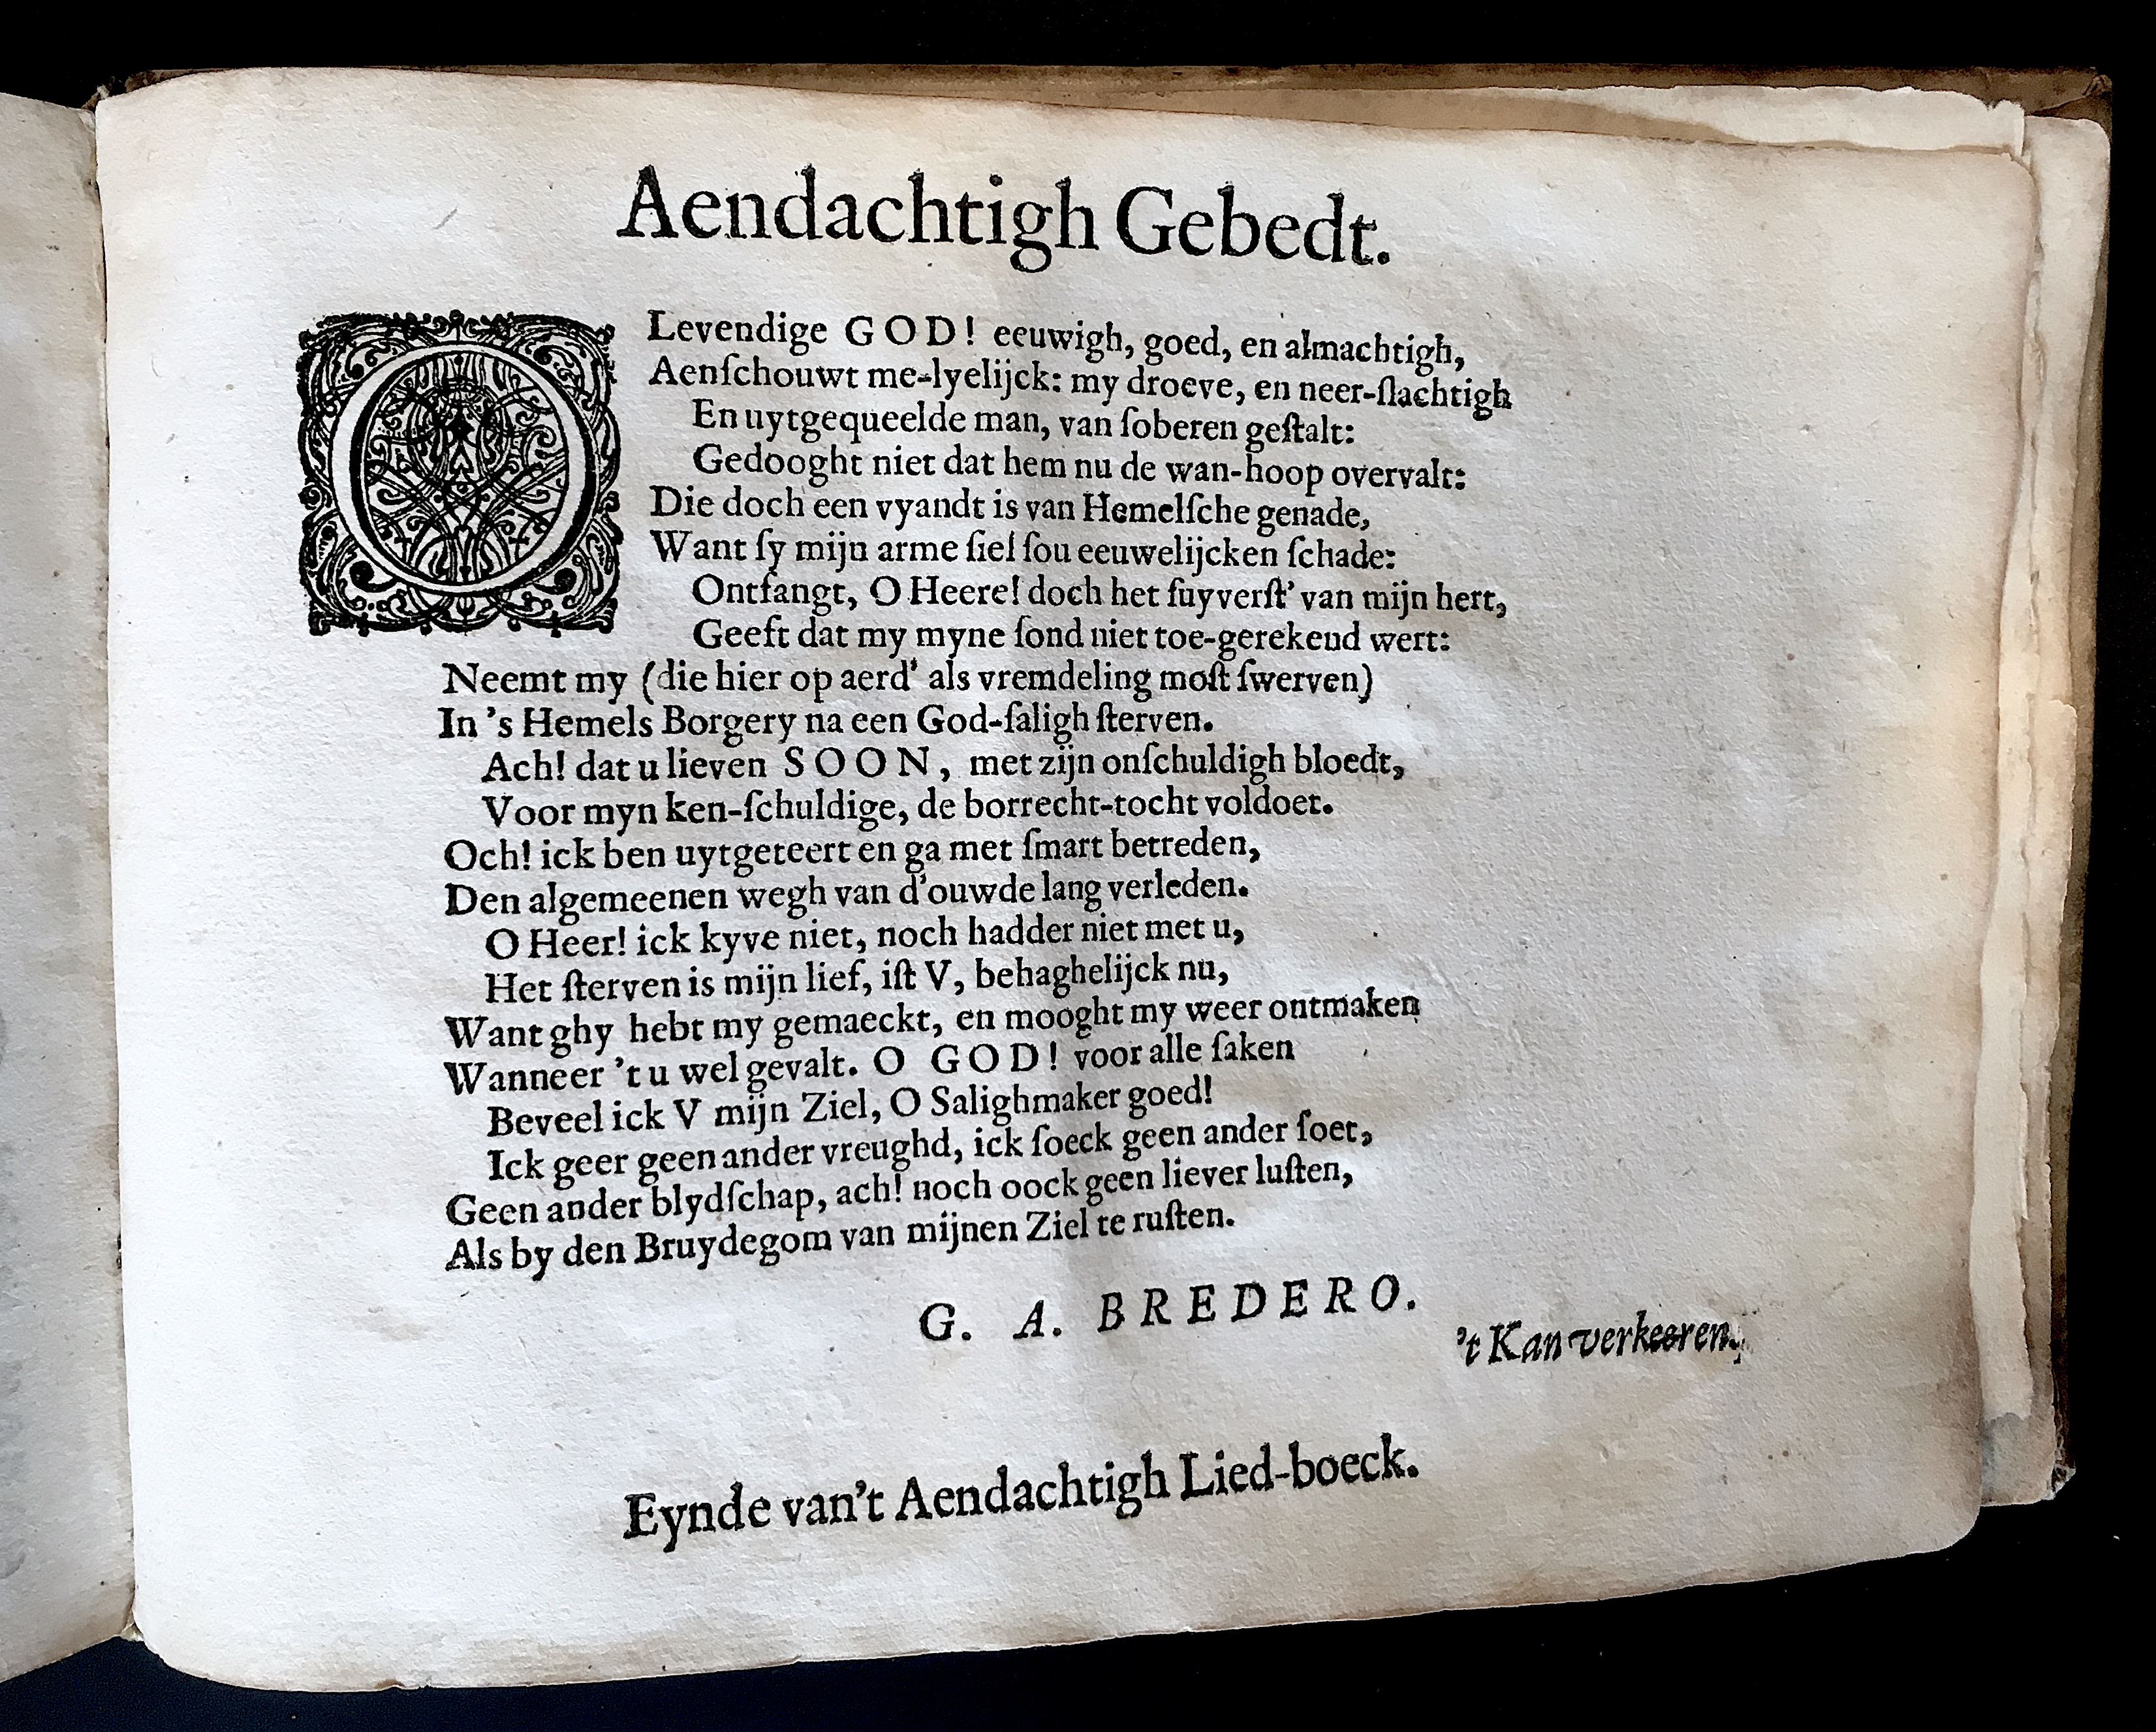 Aendachtigh Gebedt.
O Levendige GOD! eeuwigh, goed, en almachtigh,
Aenſchouwt me-lyelijck: my droeve, en neer-ſlachtigh
En uytgequeelde man, van ſoberen geſtalt:
Gedooght niet dat hem nu de wan-hoop overvalt:
Die doch een vyandt is van Hemelſche genade,
Want ſy mijn arme ſiel ſou eeuwelijcken ſchade:
Ontfangt, O Heere! doch het ſuyverſt' van mijn hert,
Geeft dat my myne ſond niet toe-gerekend wert:
Neemt my (die hier op aerd' als vremdeling moſt ſwerven)
In 's Hemels Borgery na een God-ſaligh ſterven.
Ach! dat u lieven SOON, met zijn onſchuldigh bloedt,
Voor myn ken-ſchuldige, de borrecht-tocht voldoet.
Och! ick ben uytgeteert en ga met ſmart betreden,
Den algemeenen wegh van d'ouwde lang verleden.
O Heer! ick kyve niet, noch hadder niet met u,
Het ſterven is mijn lief, iſt V, behaghelijck nu,
Want ghy hebt my gemaeckt, en mooght my weer ontmaken
Wanneer 't u wel gevalt. O GOD! voor alle ſaken
Beveel ick V mijn Ziel, O Salighmaker goed!
Ick geer geen ander vreughd, ick ſoeck geen ander ſoet,
Geen ander blydſchap, ach! noch oock geen liever luſten,
Als by den Bruydegom van mijnen Ziel te ruſten.
G. A. BREDERO.
't Kan verkeeren.
Eynde van't Aendachtigh Lied-boeck.